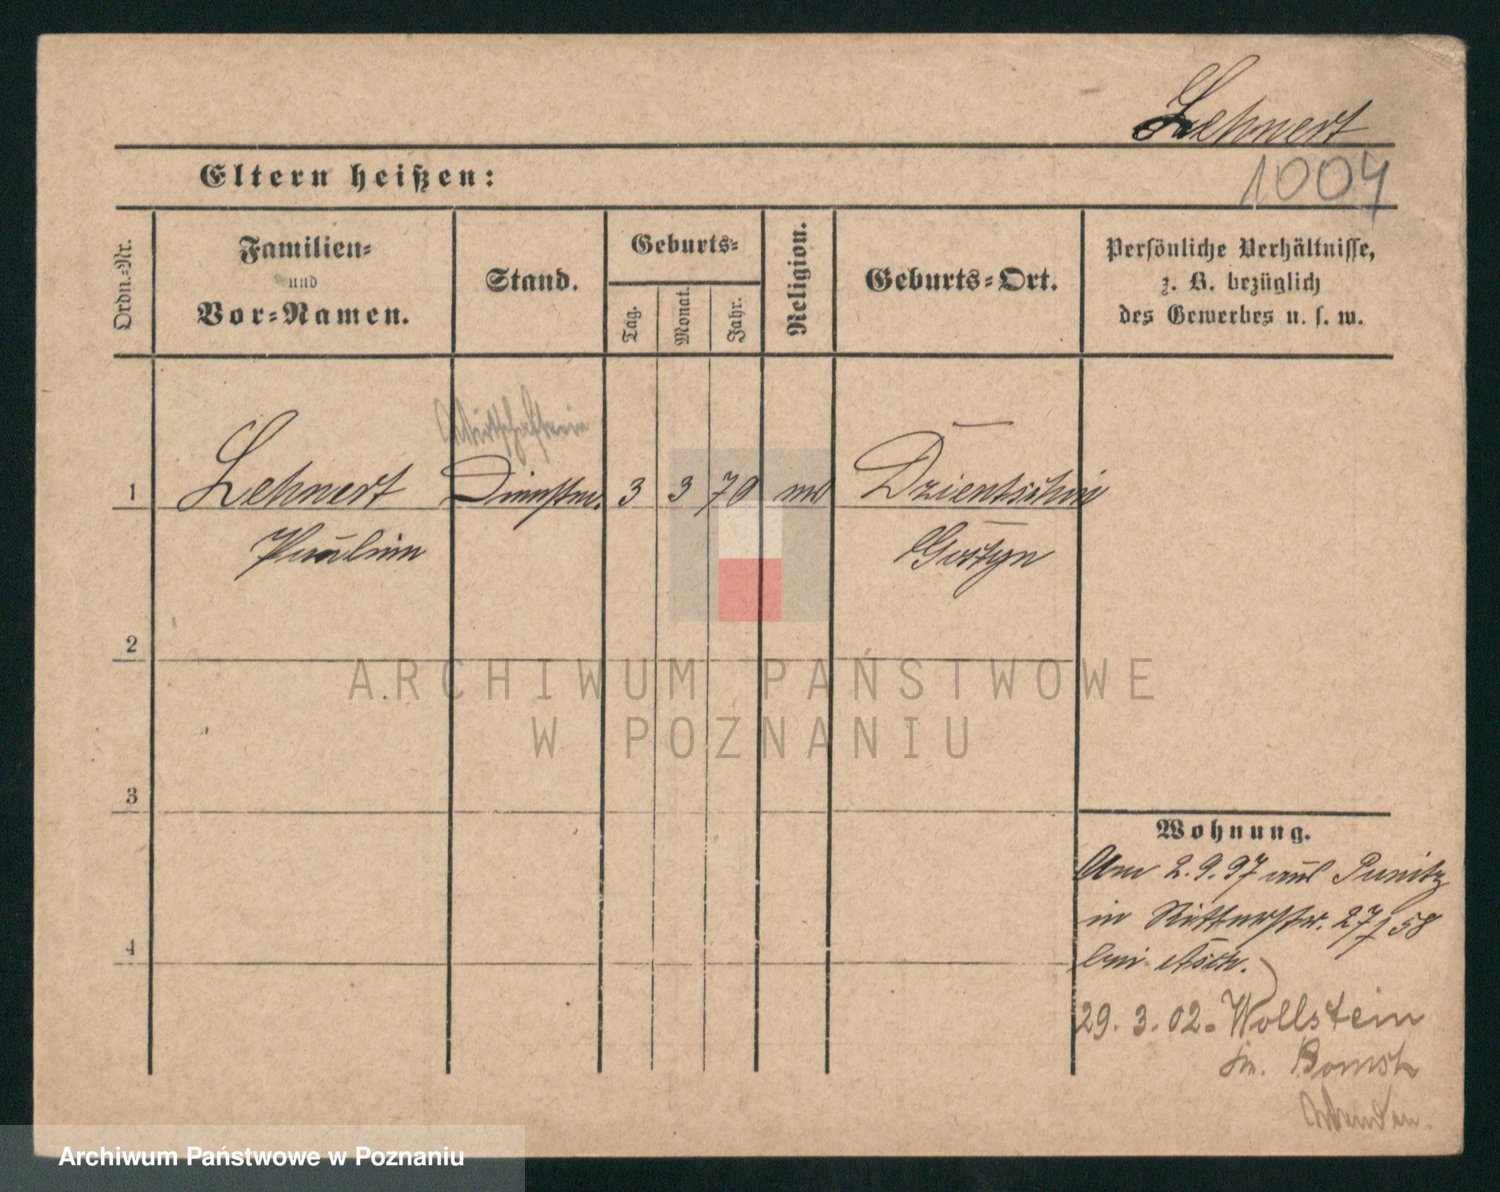 Lehnert
Eltern heißen:
1004
Ordn.-Nr.
Familien-
und
Vor-Namen.
Stand.
Geburts-
Tag.
Monat.
Jahr.
Religion.
Geburts-Ort.
Persönliche Verhältnisse,
z. B. bezüglich
des Gewerbes u. s. w.
Wirtschafterin
1 Lehnert Dienstm. 3 3 70 Dzientschin
Pauline Gostyn
2
3
4
Wohnung.
Am 2.9.97 aus Punitz
in Ritterstr. 27/58
bei Asch.
29. 3. 02. Wollstein
Kr. Bomst
ARCHIWUM PAŃSTWOWE
W POZNANIU
Archiwum Państwowe w Poznaniu